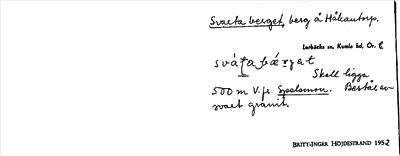 Svarta berget, berg å Håkantorp.
Lerbäcks sn, Kumla hd, Ör. l
Skall ligga
500 m V. fr. Spelemon. Består av
svart granit.
BRITT-INGER HÖJDESTRAND 1952